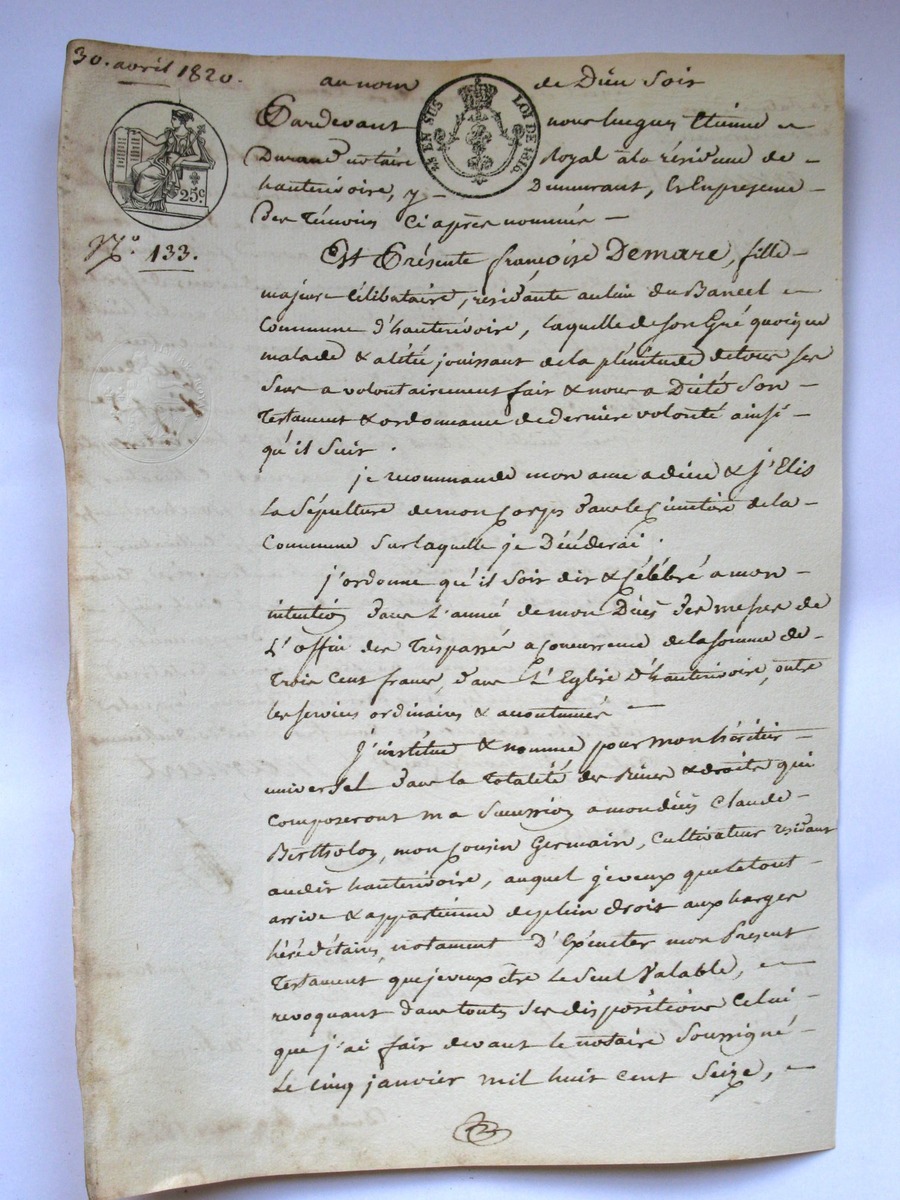 30. avril 1820.
au nom de Dieu Soit
Pardevant nous hugues Etienne
Durand notaire Royal à la résidence de
hauterivoire, y Demeurant, Et En présence
Des Témoins Ci après nommés
25c.
¼ EN SUS
LOI DE 1816
N.o 133.
Est Présente françoise Demare, fille
majeure Célibataire, résidante au lieu du Bancel
Commune d'hauterivoire, laquelle de son Gré quoique
malade & alitée jouissant de la plénitude de tous ses
Sens a volontairement fait & nous a Dicté Son
Testament & ordonnance de dernière volonté ainsi
qu'il Suit.
je recommande mon ame a dieu & j'Elis
La Sépulture de mon Corps dans le Cimetière de la
Commune Sur laquelle je Décéderai.
j'ordonne qu'il Soit dit & Célébré a mon
intention dans L'année de mon Décès Des messes de
L'office des Trespassés a Concurrence de la Somme de
Trois Cent francs, dans L'Eglise D'hauterivoire, outre
les services ordinaires & accoutumés
J'institue & nomme pour mon héritier
universel dans la Totalité des biens & droits qui
Composeront ma Succession a mon décès Claude
Bertholon, mon Cousin Germain, Cultivateur résidant
audit hauterivoire, auquel je veux que le tout
arrive & appartienne de plein droit aux charges
héréditaires, notament D'Exécuter mon Présent
Testament que je veux être Le Seul Valable,
revoquant dans toutes Ses dispositions Celui
que j'ai fait devant le notaire Soussigné
Le cinq janvier mil huit cent Seize,